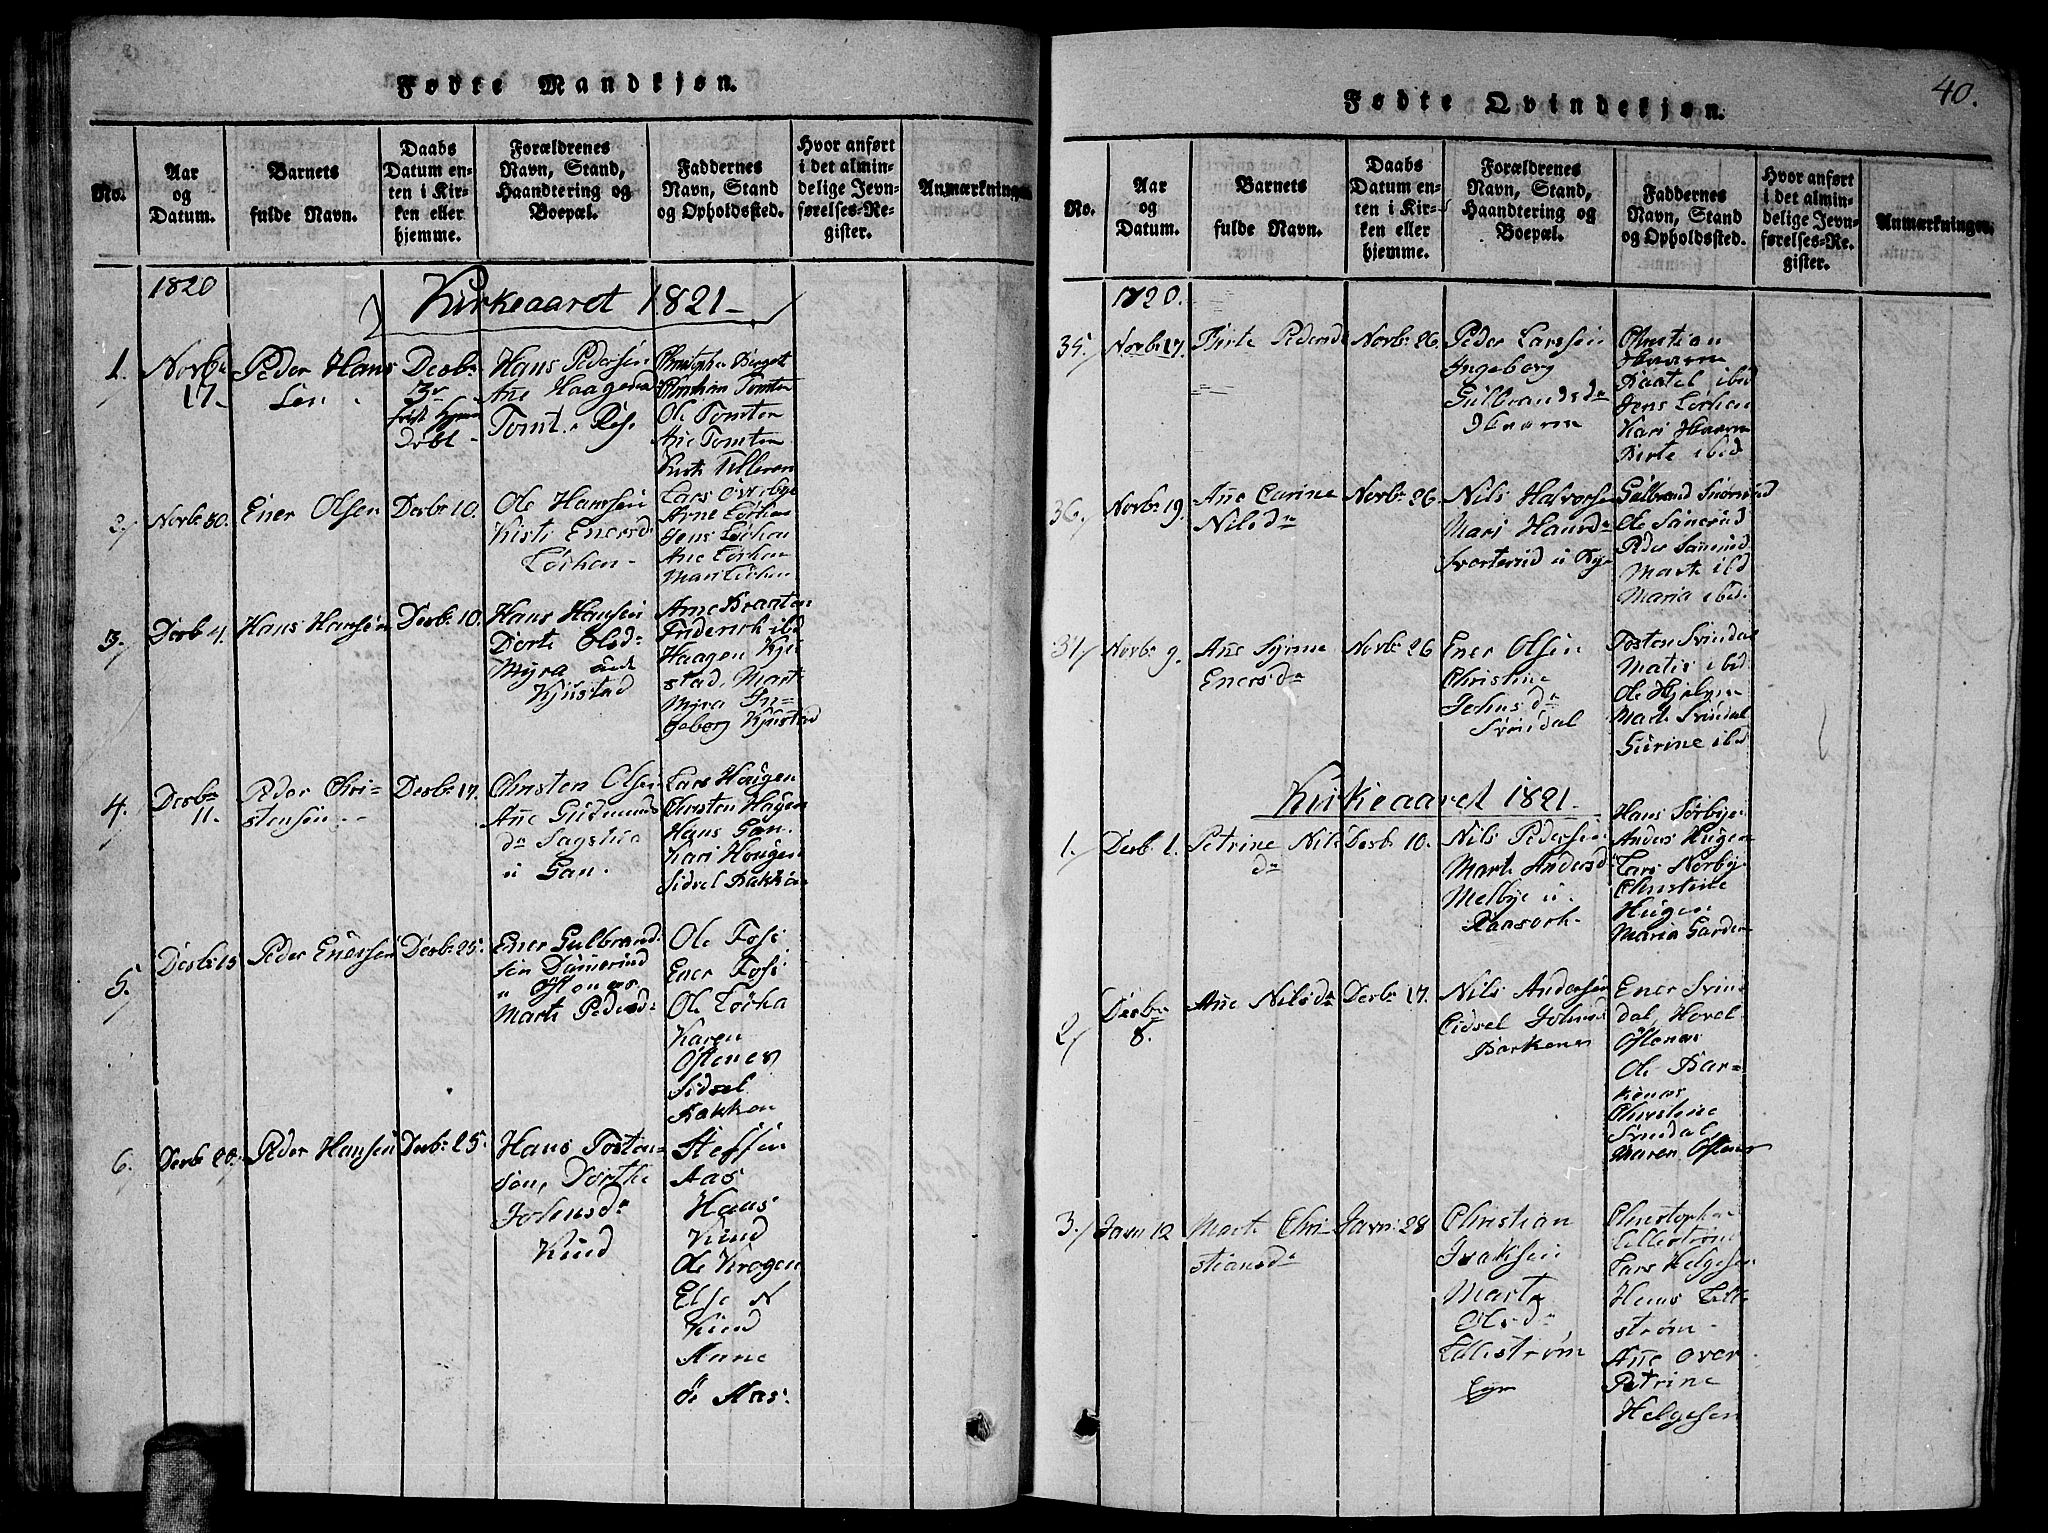 Fødte Mandkjøn.
No.
Aar
og
Datum.
Barnets
fulde Navn.
Daabs
Datum en-
ten i Kir-
ken eller
hjemme.
Forældrenes
Navn, Stand,
Haandtering og
Boepæl.
Faddernes
Navn, Stand
og Opholdssted.
Hvor anført
i det almin-
delige Jevn-
førelses-Re-
gister.
Anmærkninger.
1820
Kirkeaaret 1821
1.
Novbr
17.
Peder Hans
Sen
Desbr
3r
Døbt
Hans Pedersen
Ane Haagensd
Tomt
Christopher Berget
Abraham Tomten
Ole Tomten
Ane Tomten
2
Novbr 30.
Ener Olsen
Desbr 10.
Ole Hansen
Kisti Enersd
Lørken
Lars Østbye
Arne Lørken
Jens Lørken
Ane Lørken
Mari Lørken
3.
Desb 4.
Hans Hansen
Desbr 10.
Hans Hansen
Dorte Olsdr
Myra und
Kjustad
Arne Braaten
Friderick ibd
Haagen Kju
stad, Mart
Myra In-
geborg Kjustad
4.
Desbr
11.
Peder Chri-
stensen
Desbr 17.
Christen Olsen
Ane Gudmunds
dr Sagstue
u Gan.
Lars Hougen
Christen Hagen
Hans Gan.
Kari Hougen
Sidsel Bakken
5.
Desbr 15
Peder Enersen
Desbr 25.
Ener Gulbrand
sen Dammerud
u Ostenes
Marte Pedersdr
Ole Fosi
Ener Fosi
Ole Lørka
Karen
Ostenes
Sidsel
Bakken
6.
Desbr 20.
Peder Hansen
Desbr 25.
Hans Tosten-
søn, Dorthe
Johnsdr
Kiud
Steffen
Aas
Hans
Kiud
Ole Krogen
Else N
Kiud
Anne
Ø Aas.
Fødte Qvindekjøn.
40.
No.
Aar
og
Datum.
Barnets
fulde Navn.
Daabs
Datum en-
ten i Kir-
ken eller
hjemme.
Forældrenes
Navn, Stand,
Haandtering og
Boepæl.
Faddernes
Navn, Stand
og Opholdssted.
Hvor anført
i det almin-
delige Jevn-
førelses-Re-
gister.
Anmærkninger.
1820.
35.
Novbr 17.
Birte Pedersd
Novbr 26.
Peder Larssen
Ingeborg
Gulbrandsdr
Christian
Baatel ibid
Jens Lørken
Kari
Birte ibid
36.
Novbr 19.
Ane Carine
Nilsdr
Novbr 26.
Nils Halvorsen
Mari Hansdr
Svorterud u Rye
Gulbrand
Ole Sanerud
Peder Sanerud
Marte ibd
Maria ibid.
37
Novbr 9.
Ane Syrine
Enersdr
Novbr 26
Ener Olsen
Christine
Johnsdr
Svindal
Tosten Svindal
Matis ibid
Ole Hjelm
Marte Svindal
Gurine ibd
Kirkeaaret 1821.
1.
Desbr 1.
Petrine Nils
dr
Desbr 10.
Nils Pedersen
Marte Andersd
Melbye u
Raasok
Hans Sørbye
Anders Hugen
Lars Norbye
Christine
Hugen
Maria Garder
2
Desbr
8.
Ane Nilsdr
Desbr 17.
Nils Andersen
Cidsel Johns
Barkenes
Ener Svin
dal, Hovel
Ostenes
Ole Bar-
kenes
Christine
Svindal
Maren Ostenes
3.
Javn 12
Marte Chri-
stiansdr
Javn 28
Christian
Isaksen
Marte
Olsdr
Lillestrøm
Eyer
Christopher
Lillestrøm
Lars Helgesen
Hans Lille
strøm
Ane Over
Petrine
Helgesen